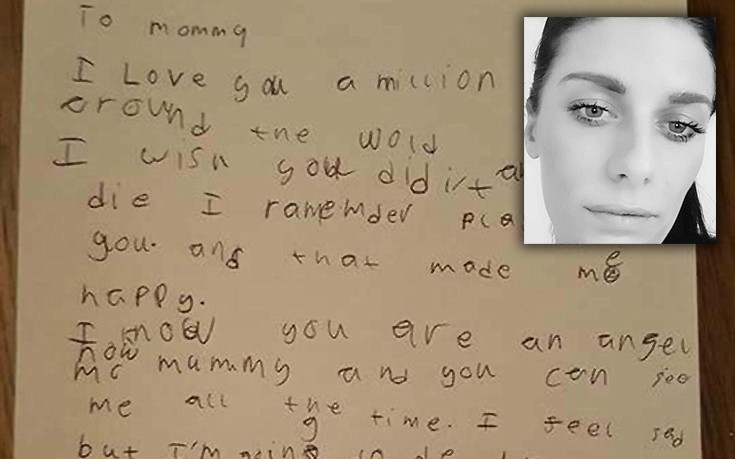 To mommy
I Love you a million
around the wold
I wish you didn't
die I ramember
you. and that made me
happy.
I now you are an angel
now
mummy and you can see
me all the time. I feel sad
but I'm going